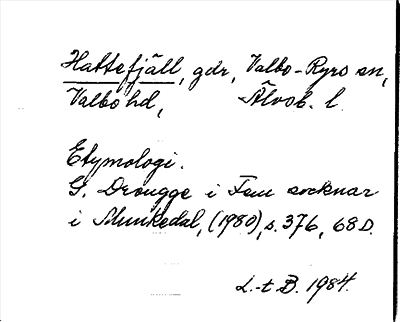 Hattefjäll, gdr, Valbo-Ryrs sn,
Valbo hd, Älvsb. l.
Etymologi.
G. Drougge i Fem socknar
i Munkedal, (1980), s. 376, 68 D.
L-t B. 1984.